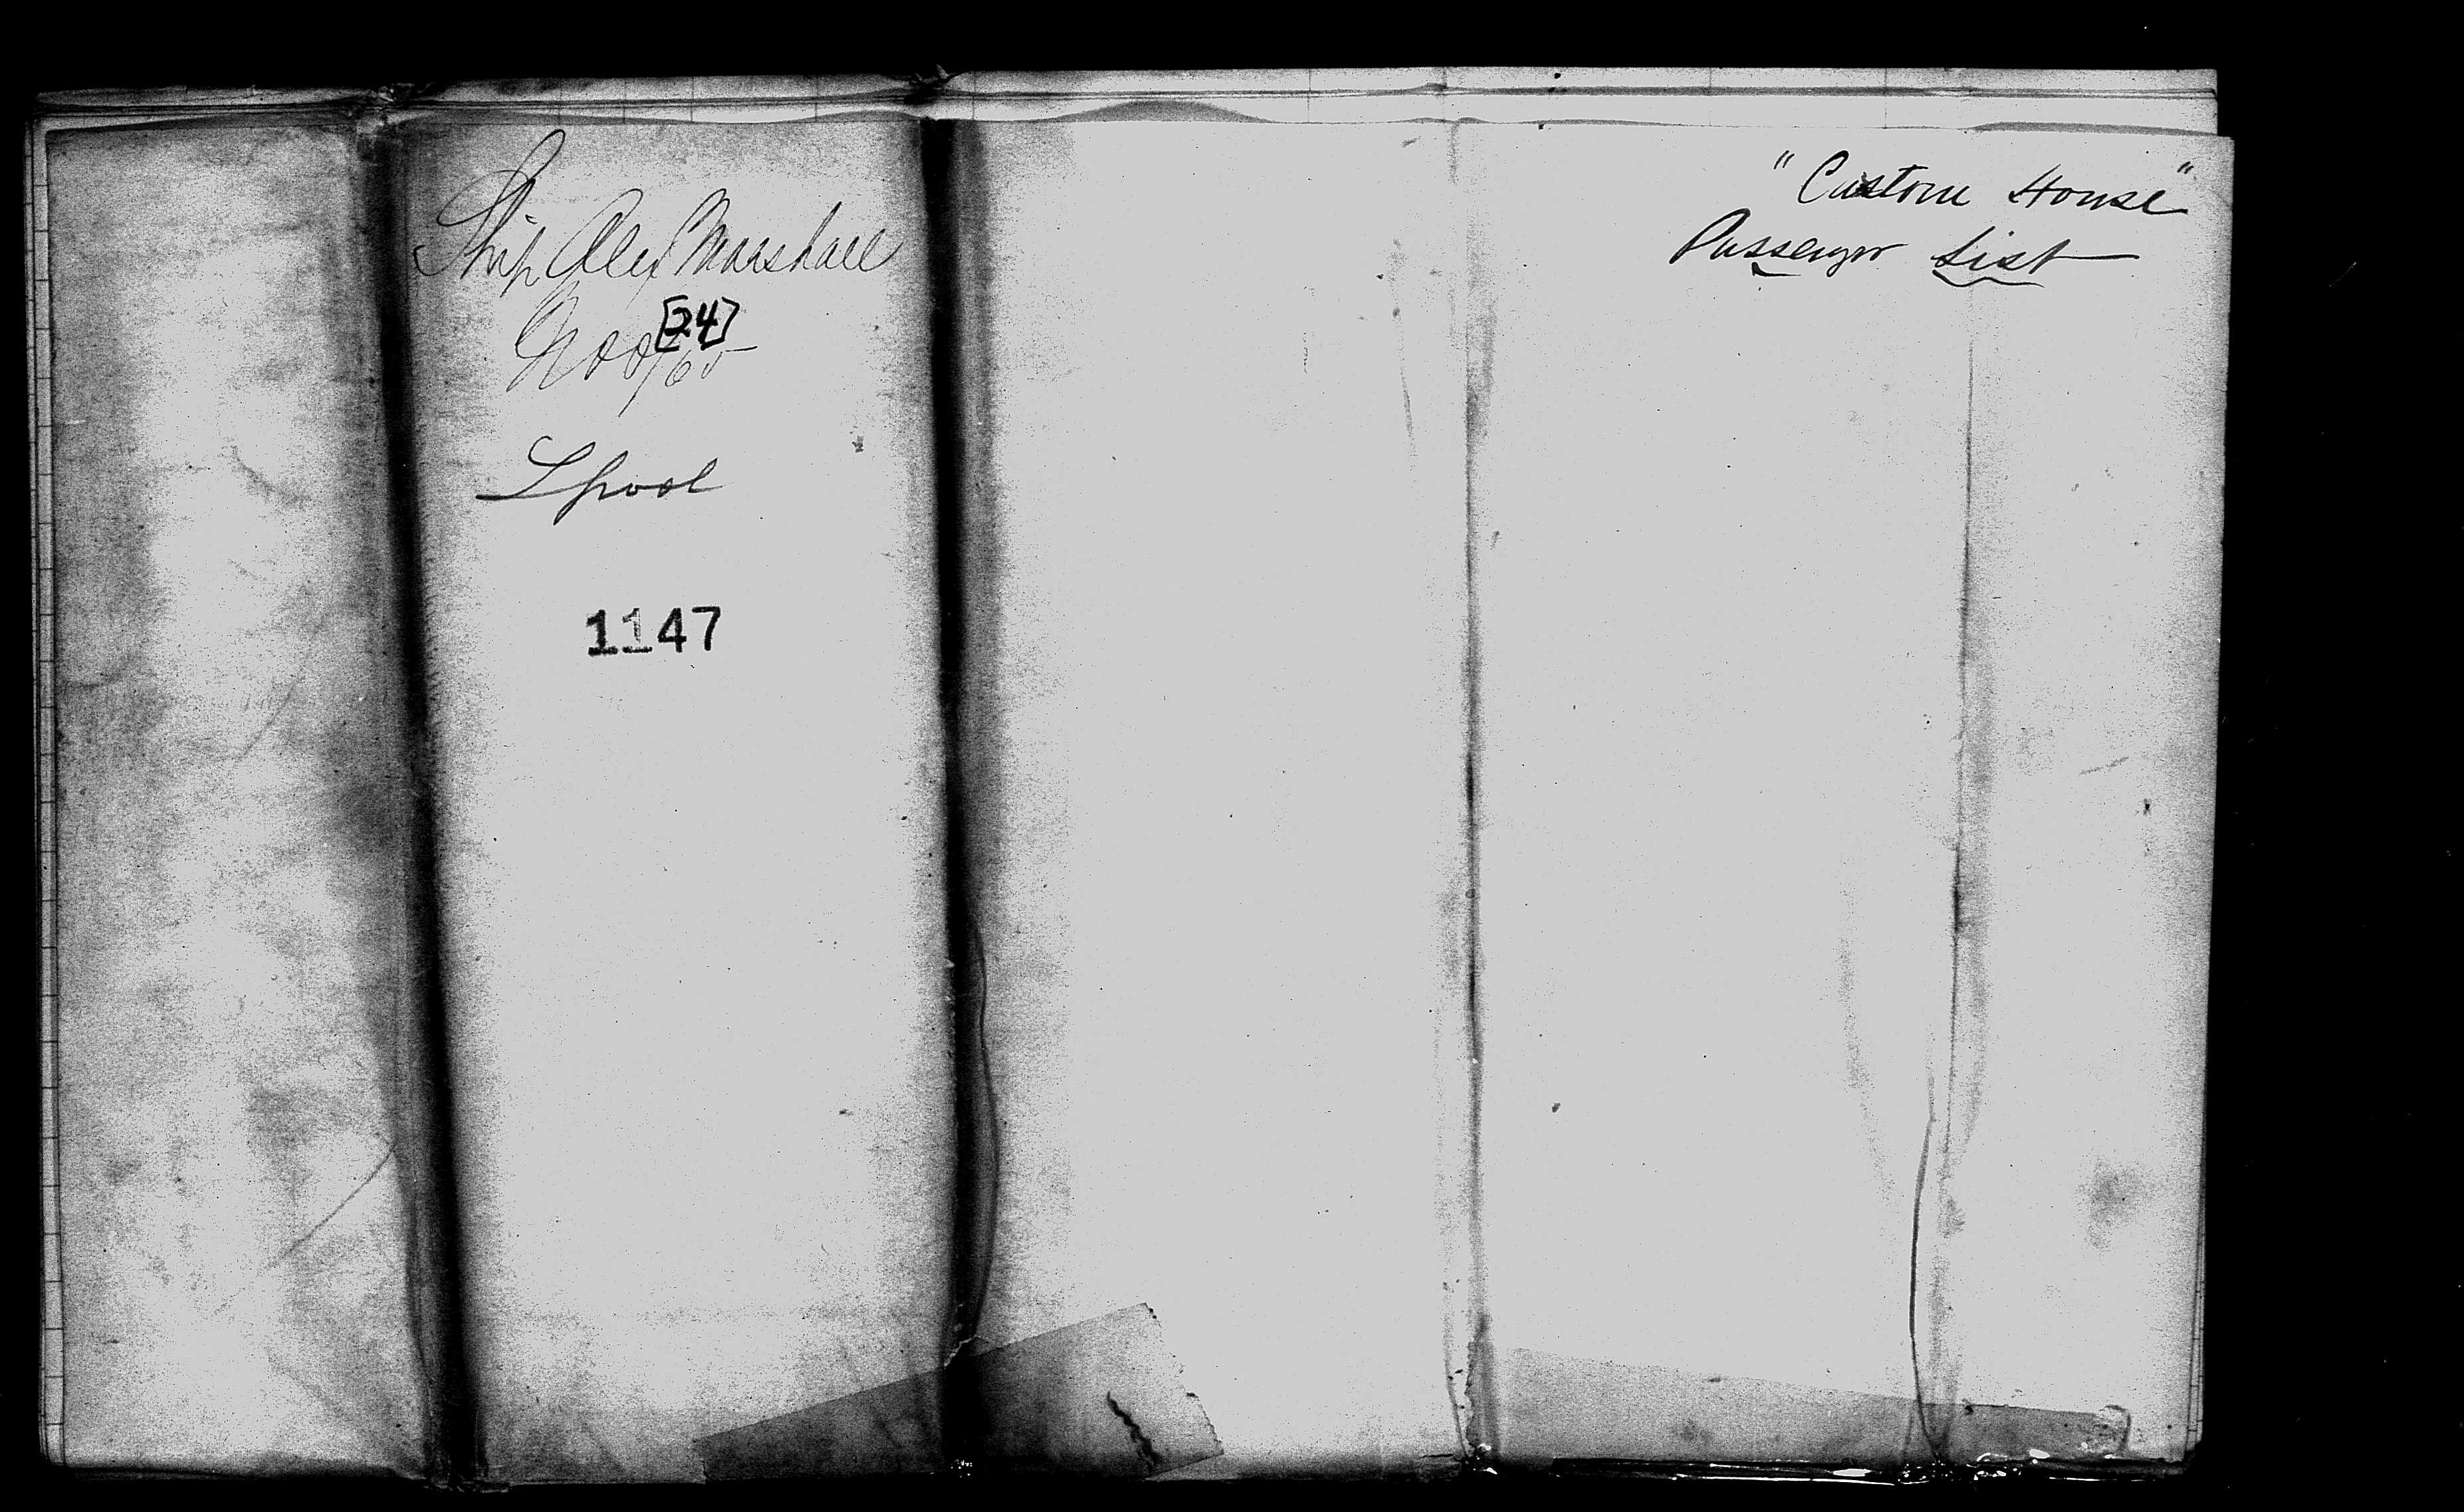 Ship Alex Marshall
[24]
Nov /65
Lpool
1147
"Custom House"
Passenger List